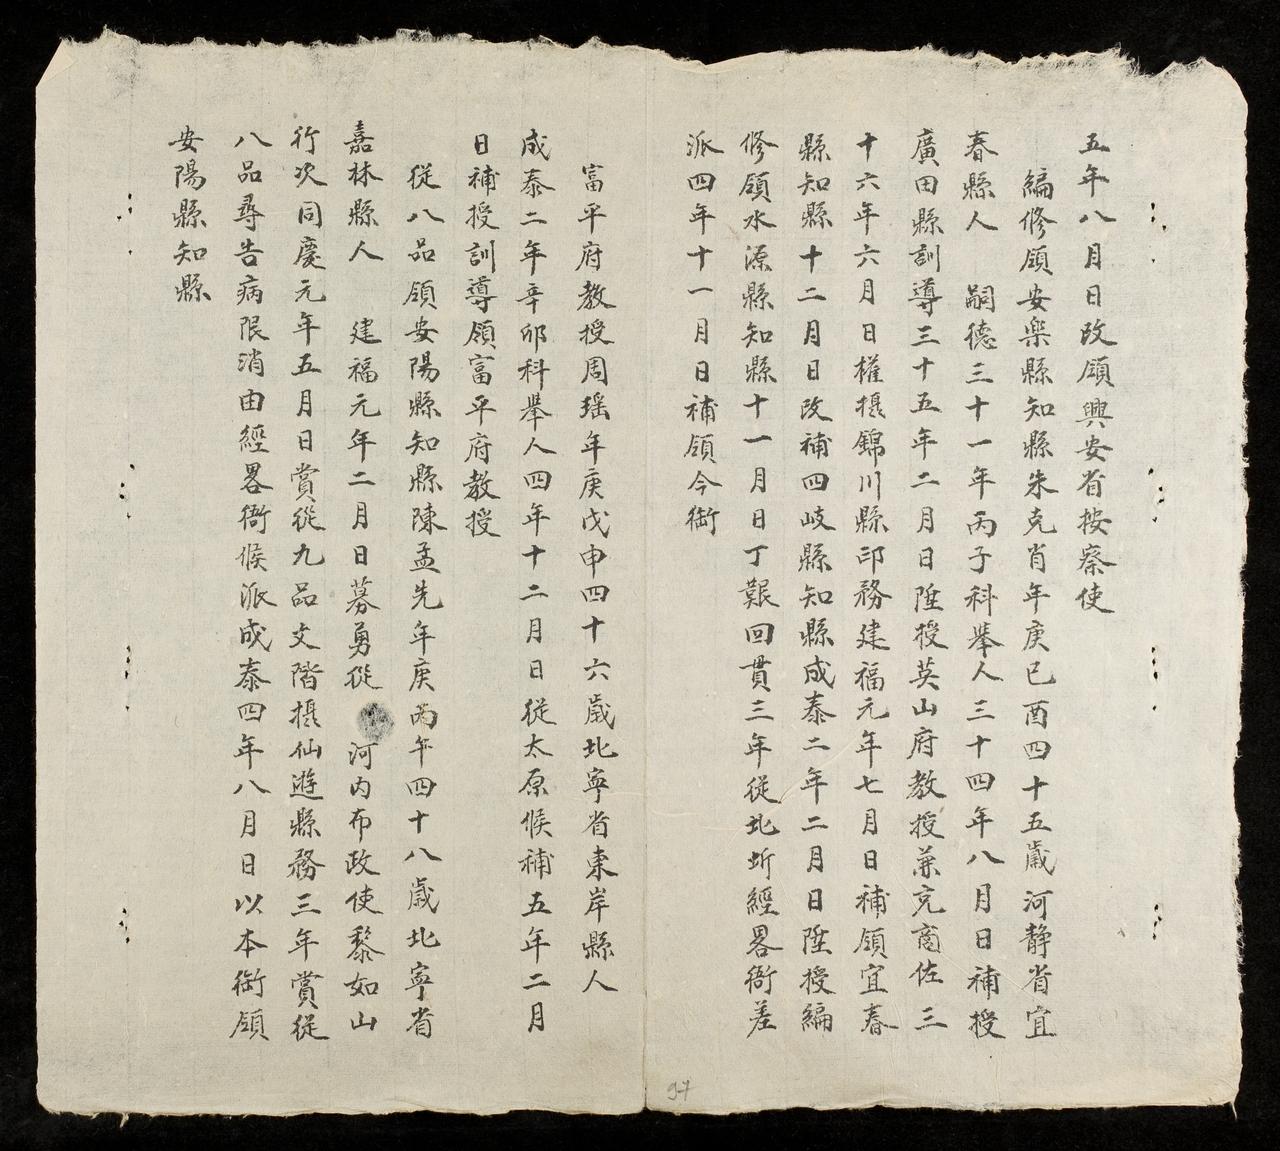 五年八月日改領興安省按察使
編修領安樂縣知縣朱克肖年庚己酉四十五歲河靜省宜
春縣人　嗣德三十一年丙子科舉人三十四年八月日補授
廣田縣訓導三十五年二月日陞授英山府教授兼充商佐三
十六年六月日權攝錦川縣印務建福元年七月日補領宜春
縣知縣十二月日改補四岐縣知縣成泰二年二月日陞授編
修領水源縣知縣十一月日丁艱回貫三年從北圻經畧衙差
派四年十一月日補領今銜
富平府教授周瑶年庚戊申四十六歲北寧省東岸縣人
成泰二年辛卯科舉人四年十二月日從太原候補五年二月
日補授訓導領富平府教授
從八品領安陽縣知縣陳孟先年庚丙午四十八歲北寧省
嘉林縣人　建福元年二月日募勇從　河內布政使黎如山
行次同慶元年五月日賞從九品文階攝仙遊縣務三年賞從
八品尋告病限消由經畧衙候派成泰四年八月日以本銜領
安陽縣知縣
97